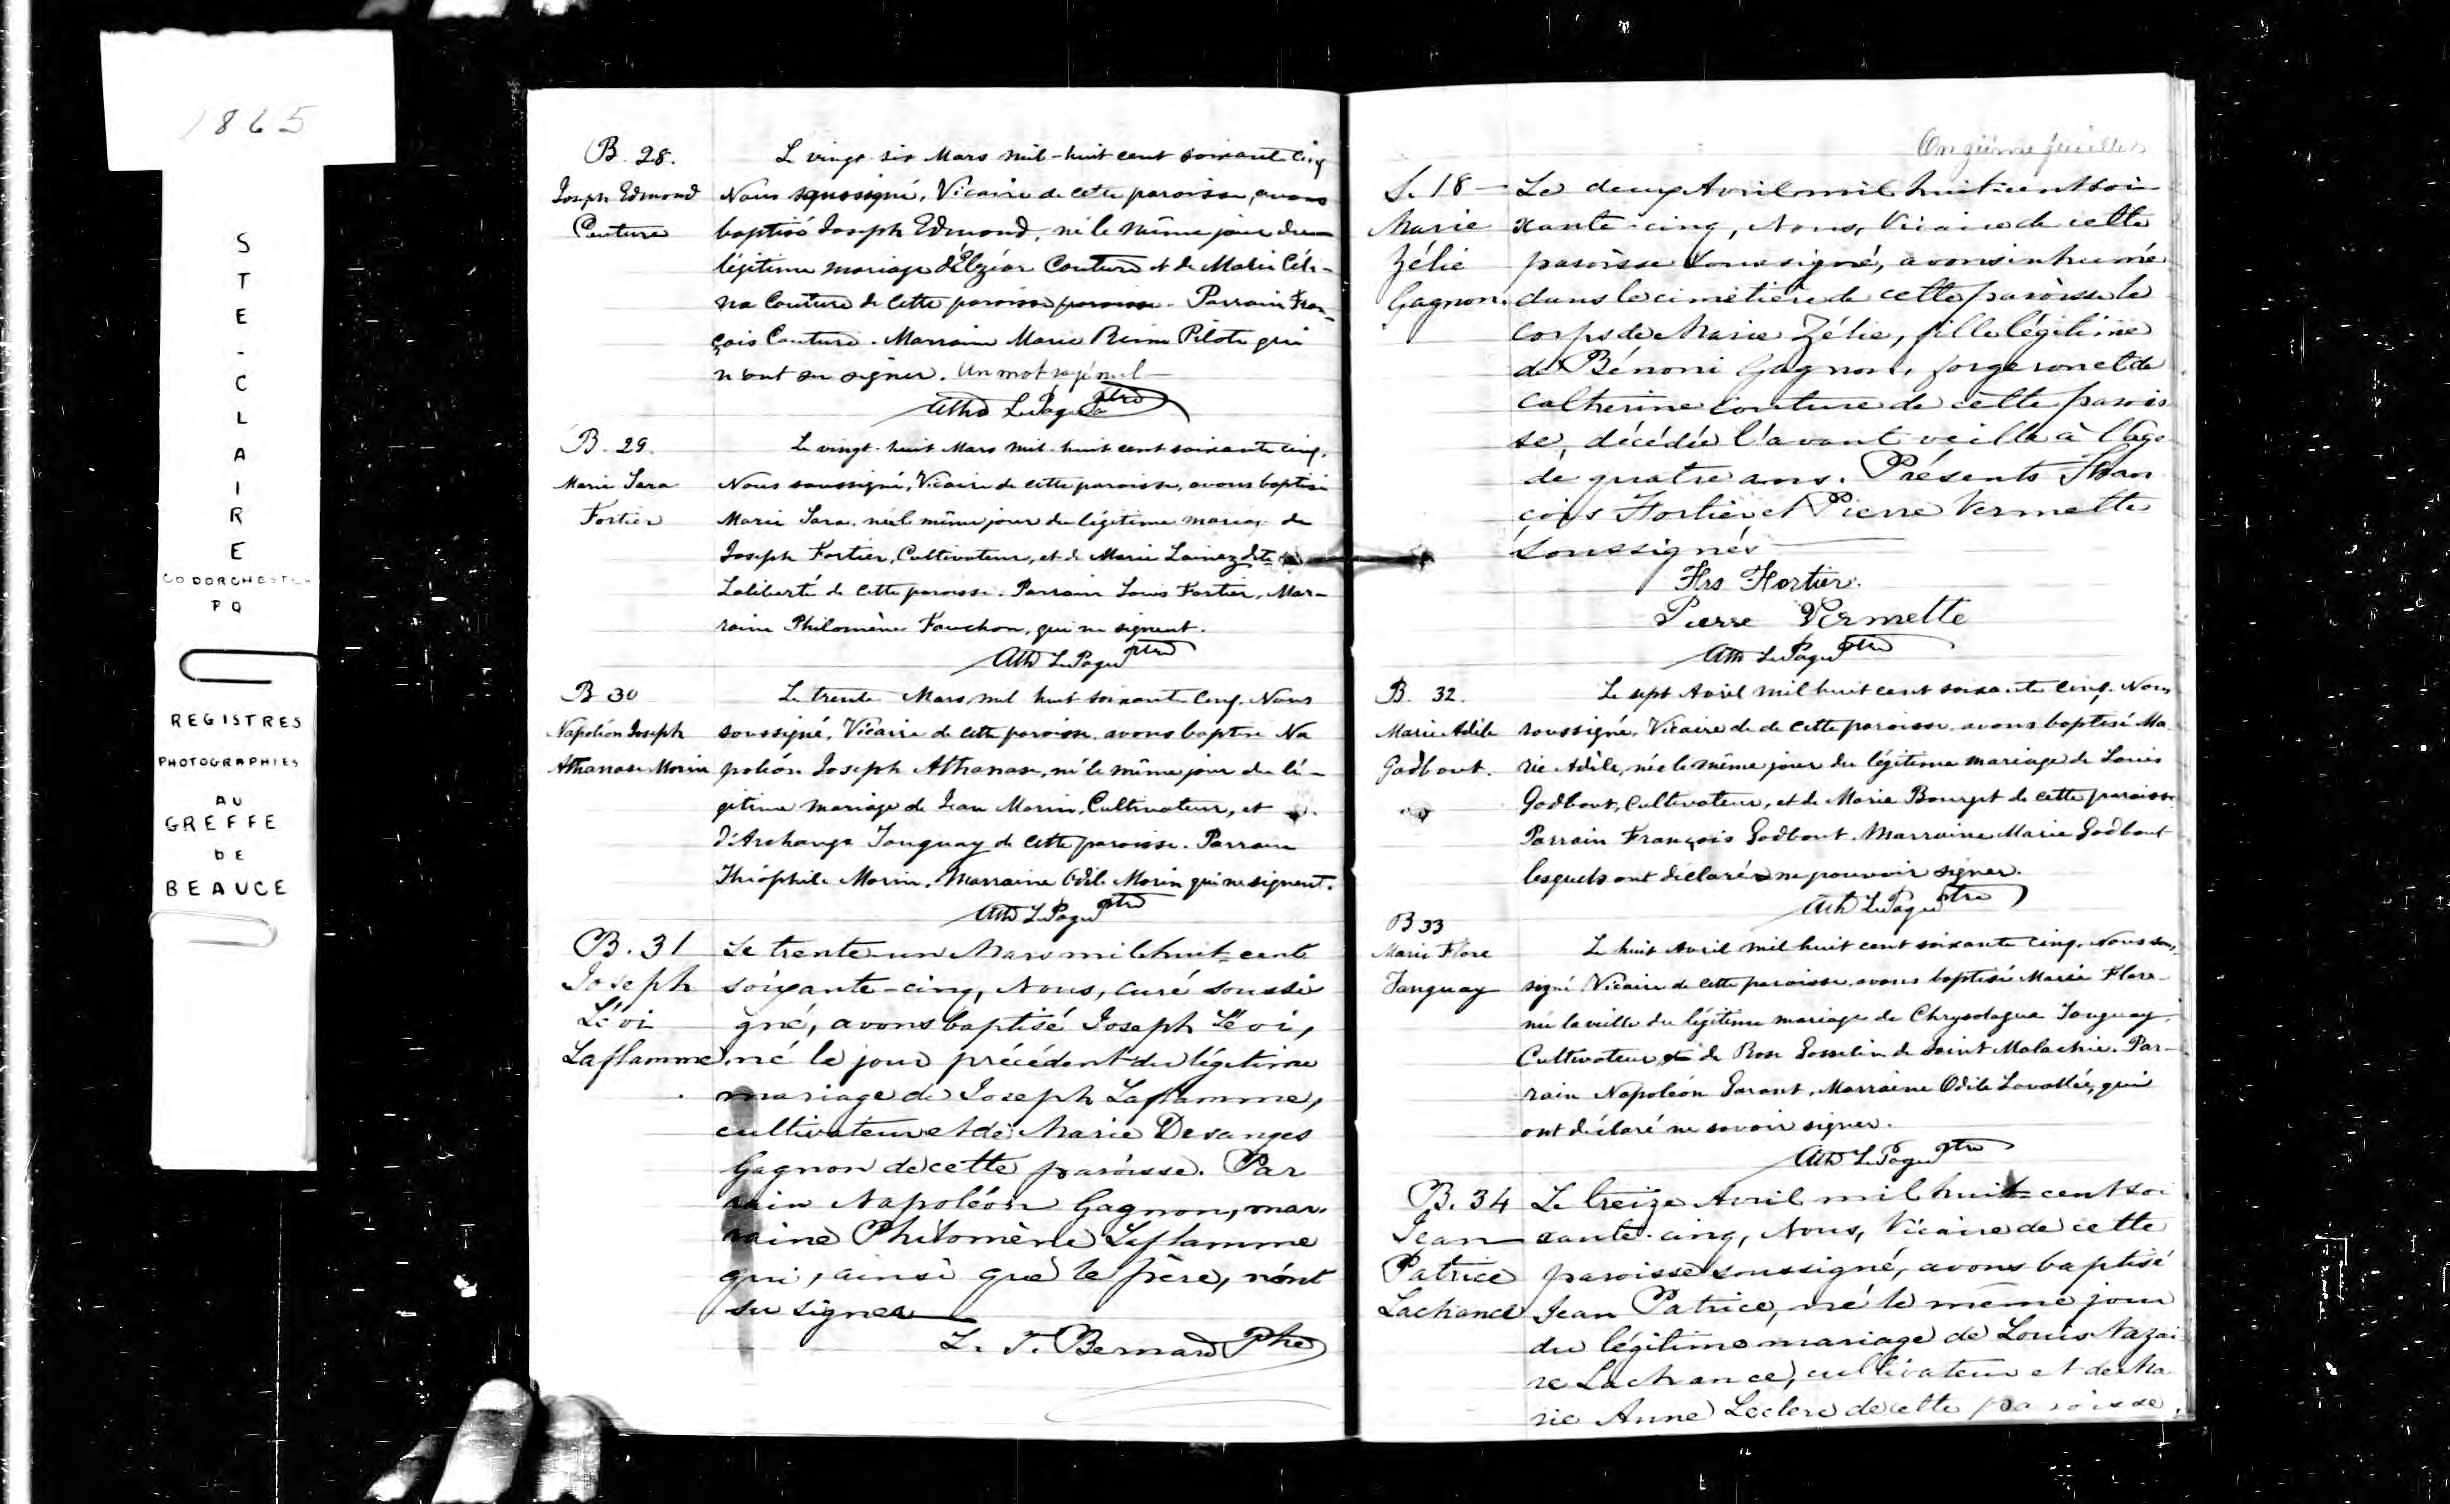 1865
STE-CLAIRE
CO DORCHESTER
P Q
REGISTRES
PHOTOGRAPHIES
AU
GREFFE
DE
BEAUCE
B. 28.
Joseph Edmond
Couture
Le vingt-six Mars mil-huit cent soixante cinq
Nous soussigné, Vicaire de cette paroisse, avons
baptisé Joseph Edmond, né le même jour du
légitime mariage d'Elzéar Couture et de Marie Céli-
na Couture de cette paroisse paroisse. Parrain Fran-
çois Couture. Marraine Marie Reine Pilote qui
n'ont su signer. Un mot rayé nul
Ath LePage Ptre
B. 29.
Marie Sara
Fortier
Le vingt-huit Mars mil-huit cent soixante cinq.
Nous soussigné, Vicaire de cette paroisse, avons baptisé
Marie Sara, née le même jour du légitime mariage de
Joseph Fortier, Cultivateur, et de Marie Lainez dite
Laliberté de cette paroisse. Parrain Louis Fortier, Mar-
raine Philomène Fauchon, qui ne signent.
Ath LePage Ptre
B 30
Napoléon Joseph
Athanase Morin
Le trente Mars mil huit soixante cinq. Nous
soussigné, Vicaire de cette paroisse, avons baptisé Na
poléon Joseph Athanase, né le même jour du lé-
gitime mariage de Jean Morin, Cultivateur, et
d'Archange Tanguay de cette paroisse. Parrain
Théophile Morin, Marraine Odile Morin qui ne signent.
Ath LePage Ptre
B. 31
Joseph
Lévi
Laflamme
Le trente-un Mars mil huit-cent
soixante-cinq, Nous, curé soussi
gné, avons baptisé Joseph Lévi,
né le jour précédent du légitime
mariage de Joseph Laflamme,
cultivateur et de Marie Desanges
Gagnon de cette paroisse. Par
rain Napoléon Gagnon, mar.
raine Philomène Laflamme
qui, ainsi que le père, n'ont
su signer
L. T. Bernard Ptre
Onzième feuillet
S. 18
Marie
Zélie
Gagnon.
Le deux Avril mil huit-cent soi-
xante-cinq, Nous, Vicaire de cette
paroisse soussigné, avons inhumé
dans le cimetière de cette paroisse le
corps de Marie Zélie, fille légitime
de Bénoni Gagnon, forgeron et de
Catherine Couture de cette parois
se, décédée l'avant veille à l'âge
de quatre ans. Présents Fran
çois Fortier et Pierre Vermette
soussignés
Frs Fortier.
Pierre Vermette
Ath LePage Ptre
B. 32.
Marie Adèle
Godbout.
Le sept Avril mil huit cent soixante cinq. Nous
soussigné, Vicaire de de cette paroisse, avons baptisé Ma
rie Adèle, née le même jour du légitime mariage de Louis
Godbout, Cultivateur, et de Marie Bourget de cette paroisse
Parrain François Godbout. Marraine Marie Godbout
lesquels ont déclaré ne pouvoir signer.
Ath LePage Ptre
B 33
Marie Flore
Tanguay
Le huit Avril mil huit cent soixante cinq. Nous sous
signé Vicaire de cette paroisse, avons baptisé Marie Flore
née la veille du légitime mariage de Chrysologue Tanguay
Cultivateur et de Rose Gosselin de Saint Malachie. Par-
rain Napoléon Garant, Marraine Odile Lavallée, qui
ont déclaré ne savoir signer.
Ath LePage Ptre
B. 34
Jean
Patrice
Lachance
Le treize Avril mil huit-cent soi
xante-cinq, Nous, Vicaire de cette
paroisse soussigné, avons baptisé
Jean Patrice, né le même jour
du légitime mariage de Louis Nazai
re Lachance, cultivateur et de Ma
rie Anne Leclerc de cette paroisse.